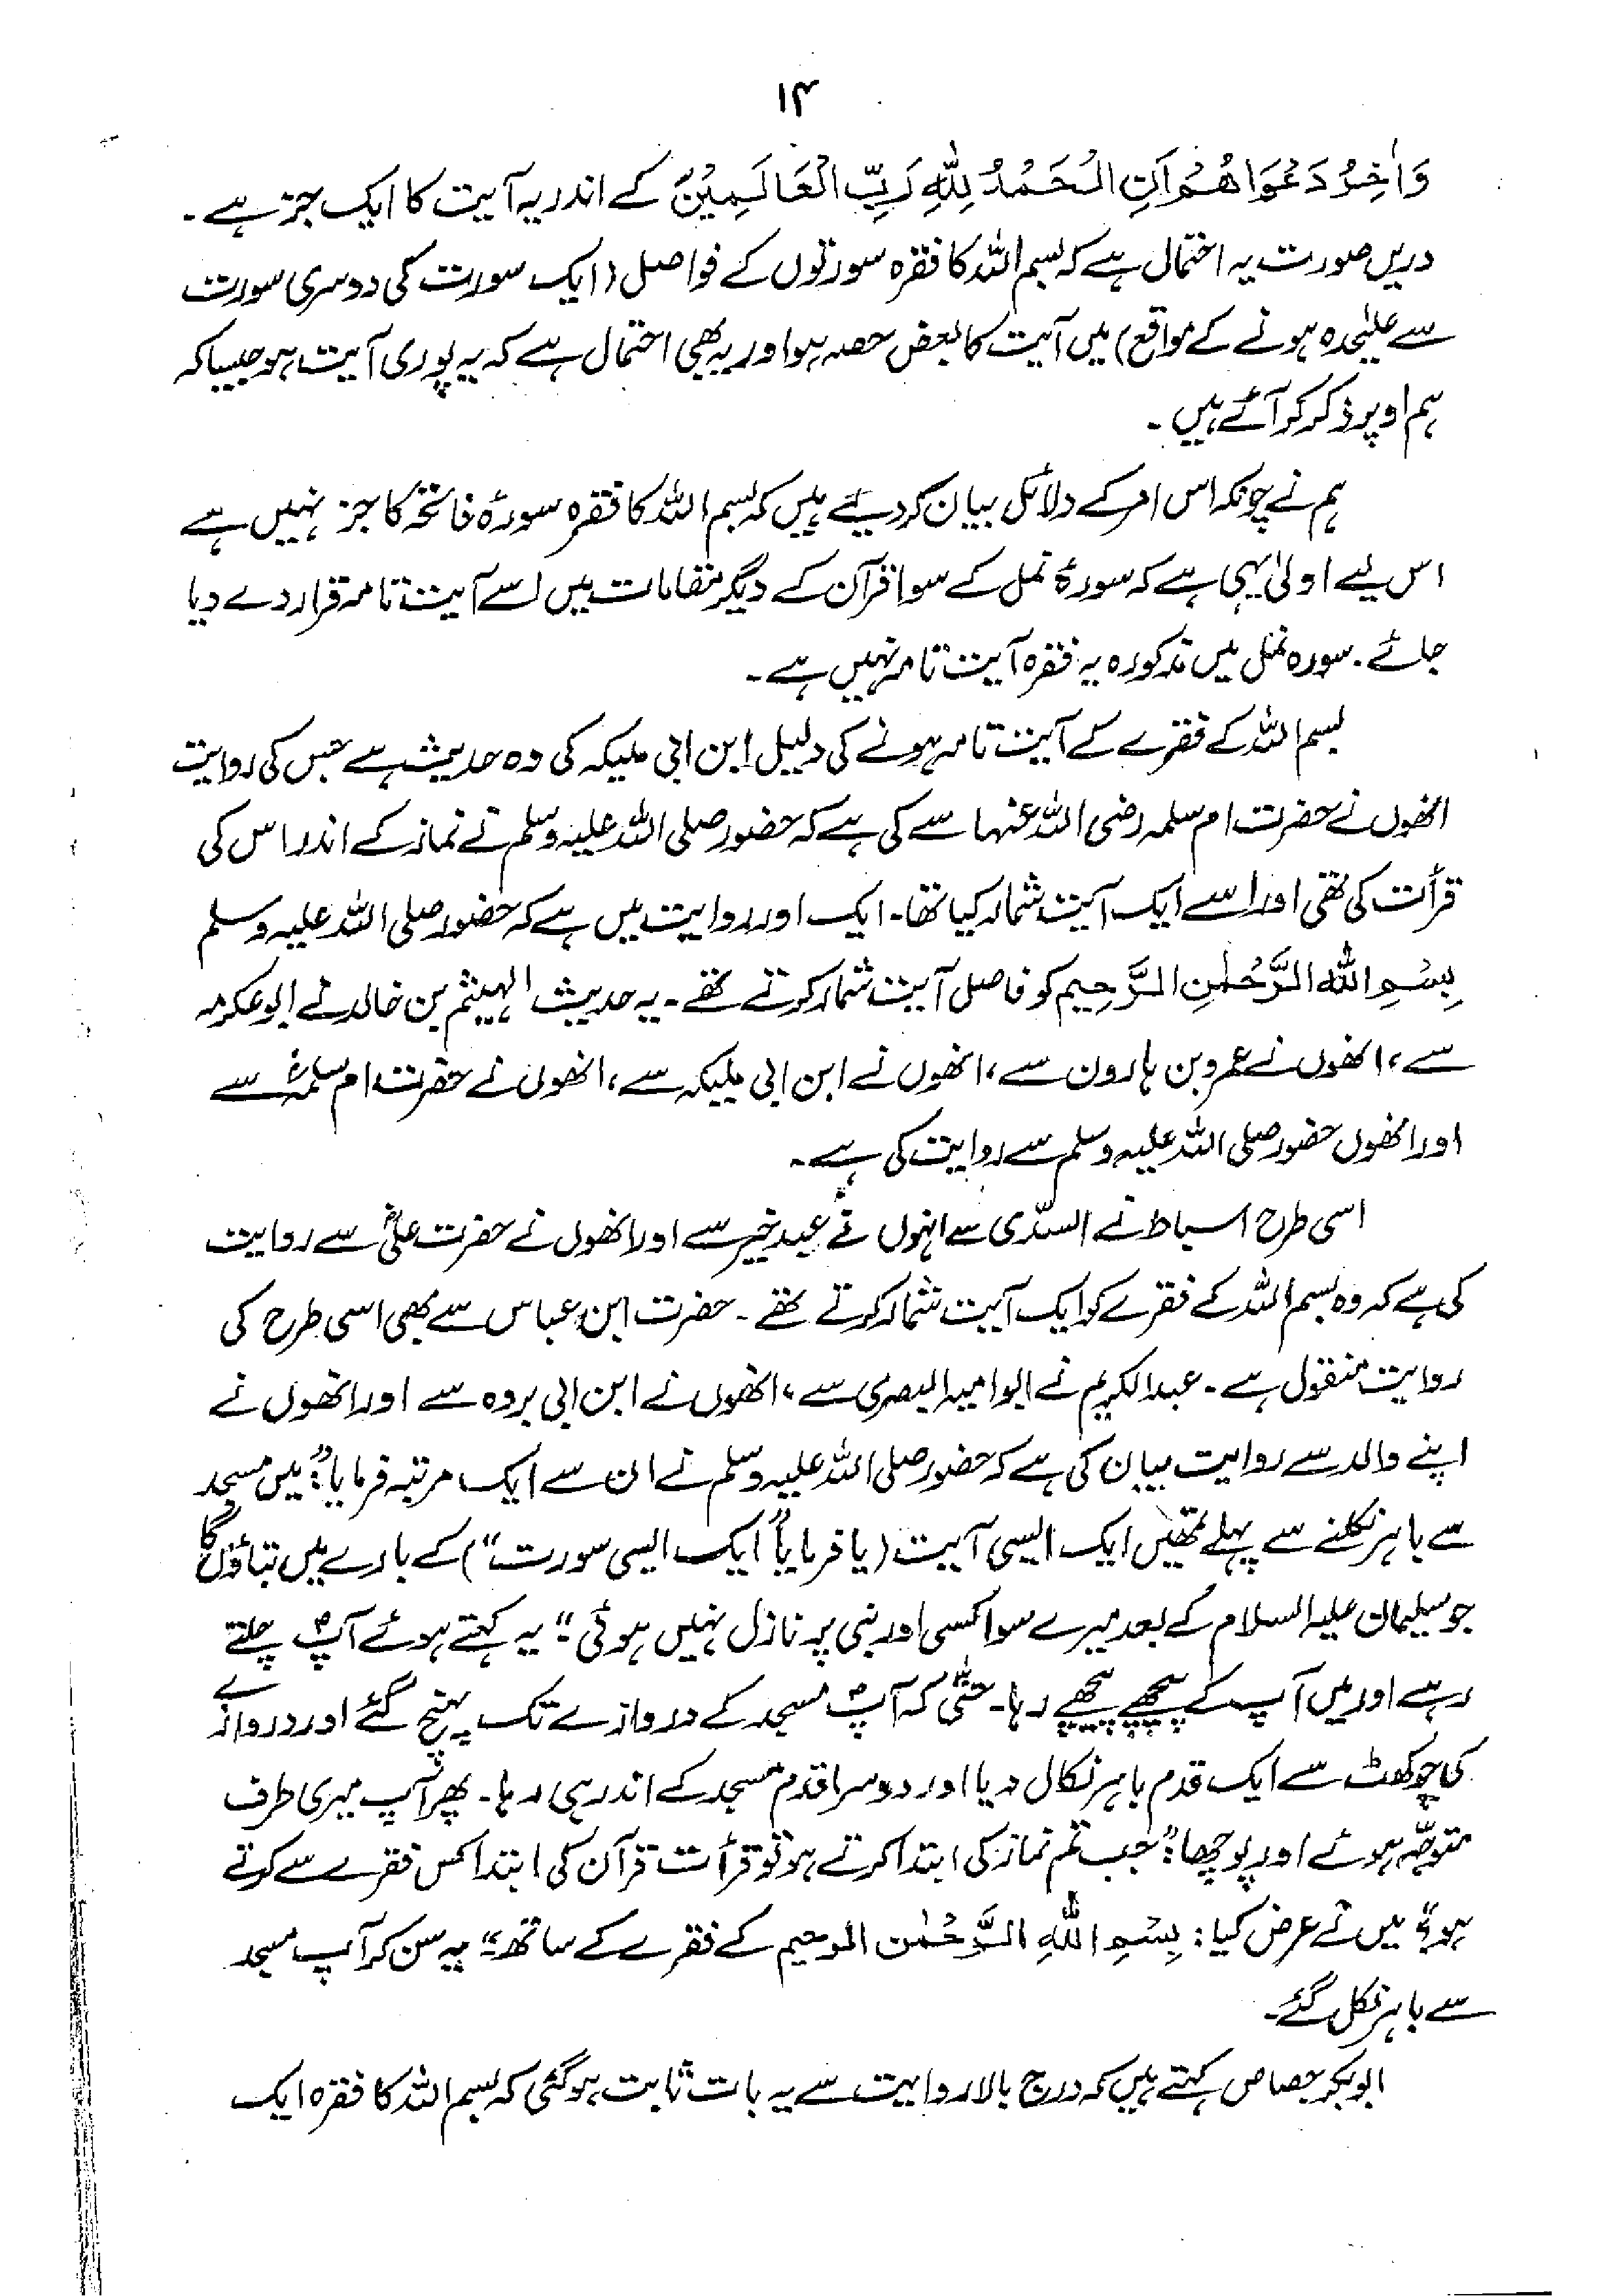 ۱۴
وَاٰخِرُ دَعْوَاهُمْ اَنِ الْحَمْدُ لِلّٰهِ رَبِّ الْعَالَمِيْنَ کے اندر یہ آیت کا ایک جز ہے ۔
دریں صورت یہ احتمال ہے کہ بسم اللہ کا فقرہ سورتوں کے فواصل (ایک سورت کی دوسری سورت
سے علیٰحدہ ہونے کے مواقع) میں آیت کا بعض حصہ ہو اور یہ بھی احتمال ہے کہ یہ پوری آیت ہو جیسا کہ
ہم اوپر ذکر کر آئے ہیں ۔
ہم نے چونکہ اس امر کے دلائل بیان کر دیئے ہیں کہ بسم اللہ کا فقرہ سورۂ فاتحہ کا جز نہیں ہے
اس لیے اولیٰ یہی ہے کہ سورۂ نمل کے سوا قرآن کے دیگر مقامات میں اسے آیت تامہ قرار دے دیا
جائے ۔ سورہ نمل میں مذکورہ یہ فقرہ آیت تامہ نہیں ہے ۔
بسم اللہ کے فقرے کے آیت تامہ ہونے کی دلیل ابن ابی ملیکہ کی وہ حدیث ہے جس کی روایت
انھوں نے حضرت ام سلمہ رضی اللہ عنہا سے کی ہے کہ حضور صلی اللہ علیہ وسلم نے نماز کے اندر اس کی
قرأت کی تھی اور اسے ایک آیت شمار کیا تھا۔ ایک اور روایت میں ہے کہ حضور صلی اللہ علیہ وسلم
بِسْمِ اللّٰهِ الرَّحْمٰنِ الرَّحِیم کو فاصل آیت شمار کرتے تھے ۔ یہ حدیث الہیثم بن خالد نے ابو عکرمہ
سے، انھوں نے عمرو بن ہارون سے، انھوں نے ابن ابی ملیکہ سے، انھوں نے حضرت ام سلمہؓ سے
اور انھوں حضور صلی اللہ علیہ وسلم سے روایت کی ہے ۔
اسی طرح اسباط نے السدّی سے انہوں نے عبد خیر سے اور انھوں نے حضرت علیؓ سے روایت
کی ہے کہ وہ بسم اللہ کے فقرے کو ایک آیت شمار کرتے تھے ۔ حضرت ابن عباس سے بھی اسی طرح کی
روایت منقول ہے ۔ عبدالکریم نے ابو امیہ البصری سے، انھوں نے ابن ابی بردہ سے اور انھوں نے
اپنے والد سے روایت بیان کی ہے کہ حضور صلی اللہ علیہ وسلم نے ان سے ایک مرتبہ فرمایا: "میں مسجد
سے باہر نکلنے سے پہلے تمھیں ایک ایسی آیت (یا فرمایا "ایک ایسی سورت") کے بارے میں بتاؤں گا
جو سلیمان علیہ السلام کے بعد میرے سوا کسی اور نبی پر نازل نہیں ہوئی" یہ کہتے ہوئے آپؐ چلتے
رہے اور میں آپ کے پیچھے پیچھے رہا۔ حتّٰی کہ آپؐ مسجد کے دروازے تک پہنچ گئے اور دروازے
کی چوکھٹ سے ایک قدم باہر نکال دیا اور دوسرا قدم مسجد کے اندر ہی رہا۔ پھر آپ میری طرف
متوجّہ ہوئے اور پوچھا: "جب تم نماز کی ابتدا کرتے ہو تو قرأت قرآن کی ابتدا کس فقرے سے کرتے
ہو؟" میں نے عرض کیا: بِسْمِ اللّٰهِ الرَّحْمٰن الرحیم کے فقرے کے ساتھ" یہ سن کر آپ مسجد
سے باہر نکل گئے۔
ابوبکر جصاص کہتے ہیں کہ درج بالا روایت سے یہ بات ثابت ہو گئی کہ بسم اللہ کا فقرہ ایک